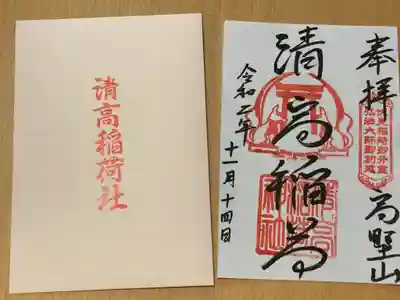 清高稲荷社
奉拝
高野山
清高稲荷
令和二年
十一月十四日